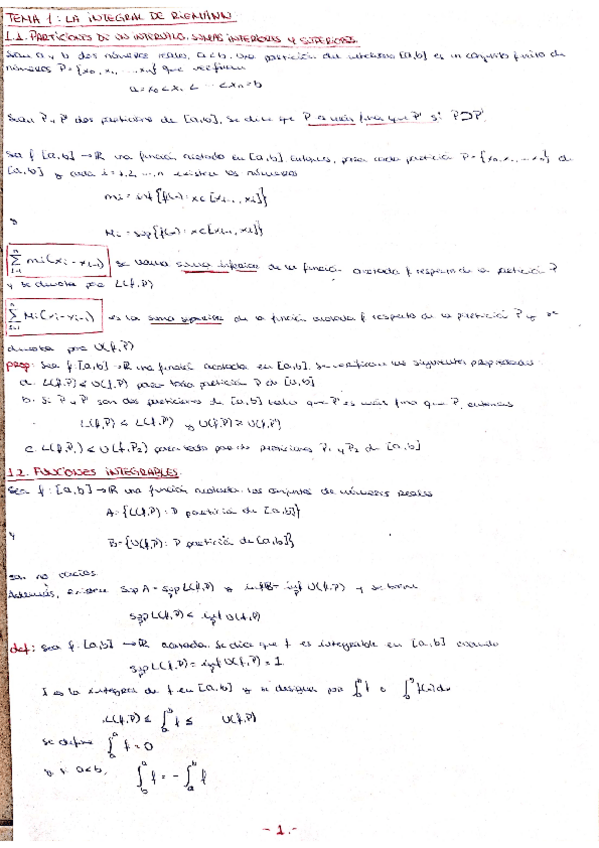 TEMA 1: LA INTEGRAL DE RIEMANN
1.1. PARTICIONES DE UN INTERVALO. SUMAS INFERIORES Y SUPERIORES
Sean a y b dos números reales, a<b. Una partición del intervalo [a,b] es un conjunto finito de
números P={x₀, x₁, ... xₙ} que verifican
a=x₀<x₁< ... <xₙ=b
Sean P y P' dos particiones de [a,b], se dice que P es más fina que P' si P⊃P'
Sea f:[a,b]→R una función acotada en [a,b] entonces, para cada partición P={x₀,x₁,...xₙ} de
[a,b] y cada i=1,2,...,n existen los números
mi=inf{f(x): x∈[xi-1, xi]}
y
Mi=sup{f(x): x∈[xi-1, xi]}
∑ⁿᵢ₌₁ mi(xi-xi-1) se llama suma inferior de la función acotada f respecto de la partición P
y se denota por L(f,P)
∑ⁿᵢ₌₁ Mi(xi-xi-1) es la suma superior de la función acotada f respecto de la partición P y se
denota por U(f,P)
prop: Sea f:[a,b]→R una función acotada en [a,b], se verifican las siguientes propiedades
a. L(f,P)≤U(f,P) para toda partición P de [a,b]
b. Si P y P' son dos particiones de [a,b] tales que P' es más fina que P, entonces
L(f,P) ≤ L(f,P') y U(f,P) ≥ U(f,P')
c. L(f,P₁)≤U(f,P₂) para todo par de particiones P₁ y P₂ de [a,b]
1.2. FUNCIONES INTEGRABLES
Sea f:[a,b]→R una función acotada. Los conjuntos de números reales
A={L(f,P): P partición de [a,b]}
y
B={U(f,P): P partición de [a,b]}
son no vacíos
Además, existen sup A = sup L(f,P) y inf B = inf U(f,P) y se tiene
sup L(f,P) ≤ inf U(f,P)
def: Sea f:[a,b]→R acotada. Se dice que f es integrable en [a,b] cuando
sup L(f,P)=inf U(f,P)=I
I es la integral de f en [a,b] y se designa por ∫ᵇₐ f o ∫ᵇₐ f(x)dx
L(f,P) ≤ ∫ᵇₐ f ≤ U(f,P)
Se define ∫ᵃₐ f=0
y si a<b, ∫ᵃ_b f = -∫ᵇₐ f
- 1.-